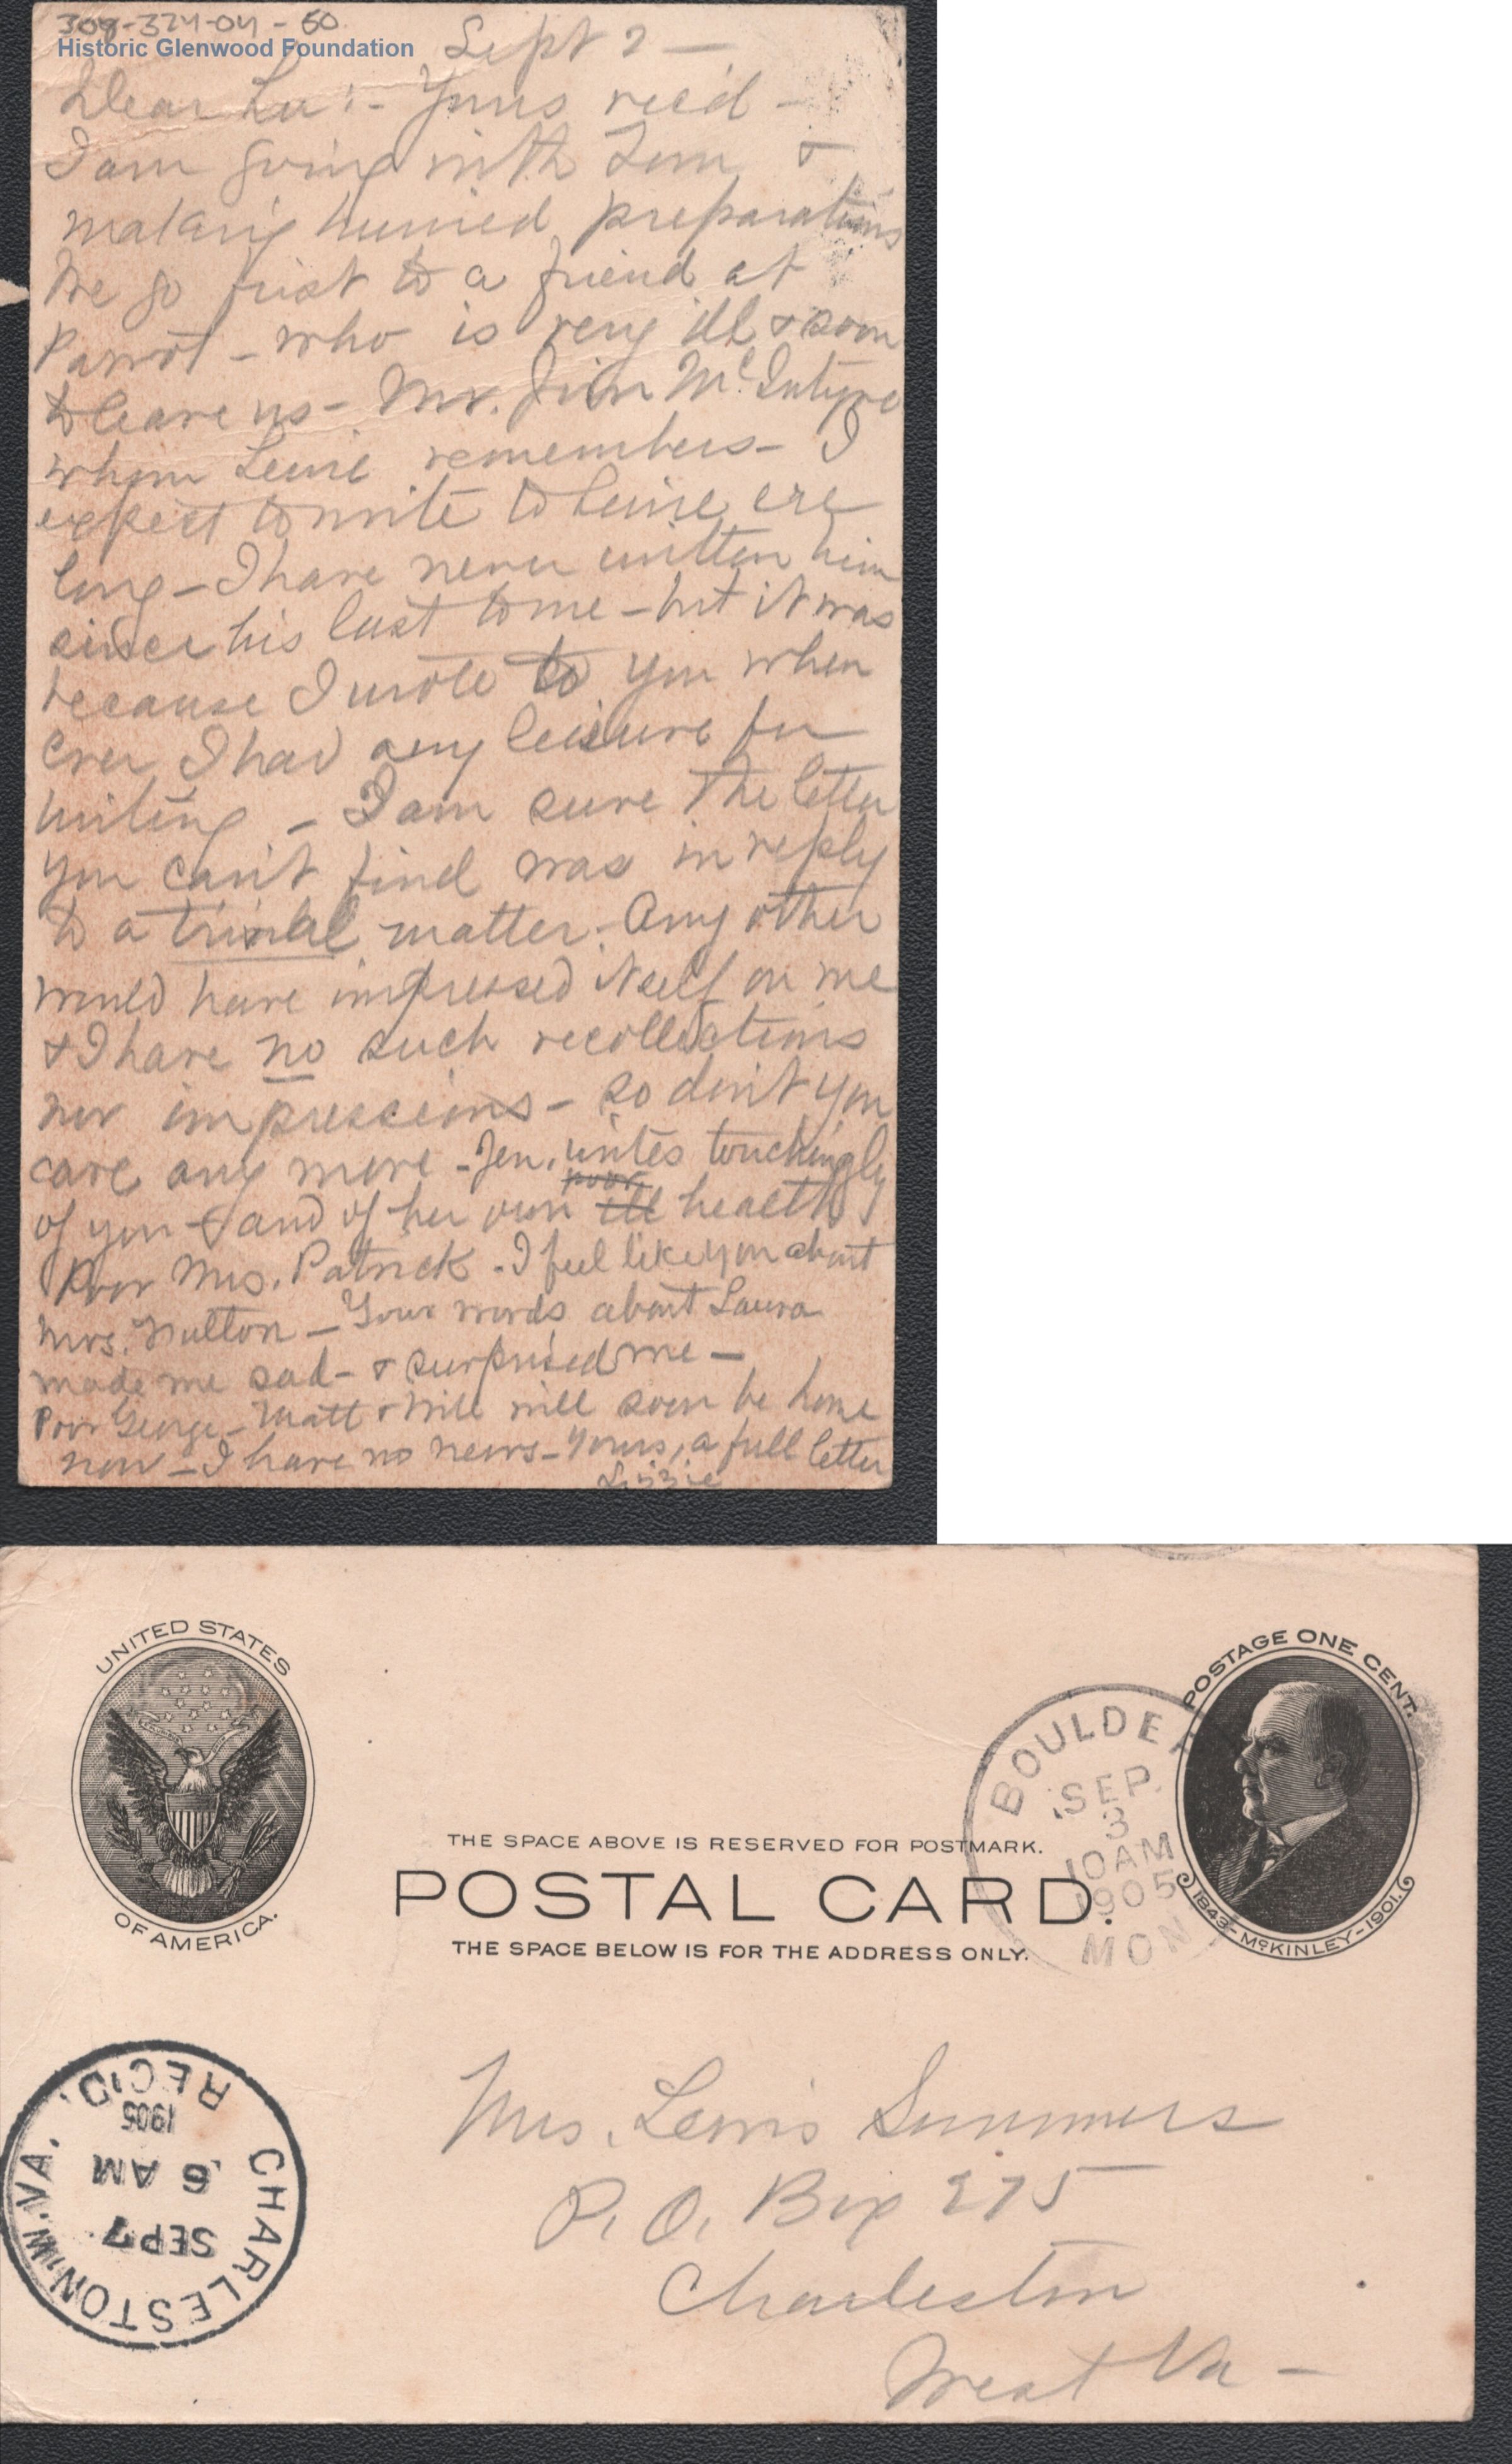 308-374-04-50
Historic Glenwood Foundation
Sept 2 —
Dear Lu :- Yours rec'd -
I am going with Tom &
making hurried preparations
We go first to a friend at
Parrot - who is very ill & soon
to leave us - Mr. Jim McIntyre
whom Lewie remembers - I
expect to write to Lewie ere
long - I have never written him
since his last to me - but it was
because I wrote to you when
ever I had any leisure for
writing - I am sure the letter
you can't find was in reply
to a trivial matter - Any other
would have impressed itself on me
& I have no such recollections
nor impressions - so don't you
care any more - Jen. writes touchingly
poor
of you & and of her own ill health
Poor Mrs. Patrick - I feel like you about
Mrs. - Your words about Laura
made me sad - & surprised me -
Poor George - Matt & Will will soon be home
now - I have no news - Yours, a full letter
Lizzie
UNITED STATES
OF AMERICA.
POSTAGE ONE CENT.
1843-McKINLEY-1901.
BOULDER
SEP.
3
10 AM
1905
MONT
THE SPACE ABOVE IS RESERVED FOR POSTMARK.
POSTAL CARD.
THE SPACE BELOW IS FOR THE ADDRESS ONLY.
CHARLESTON, W. VA.
SEP 7
6 AM
1905
REC'D.
Mrs. Lewis Summers
P. O. Box 275
Charleston
West Va -